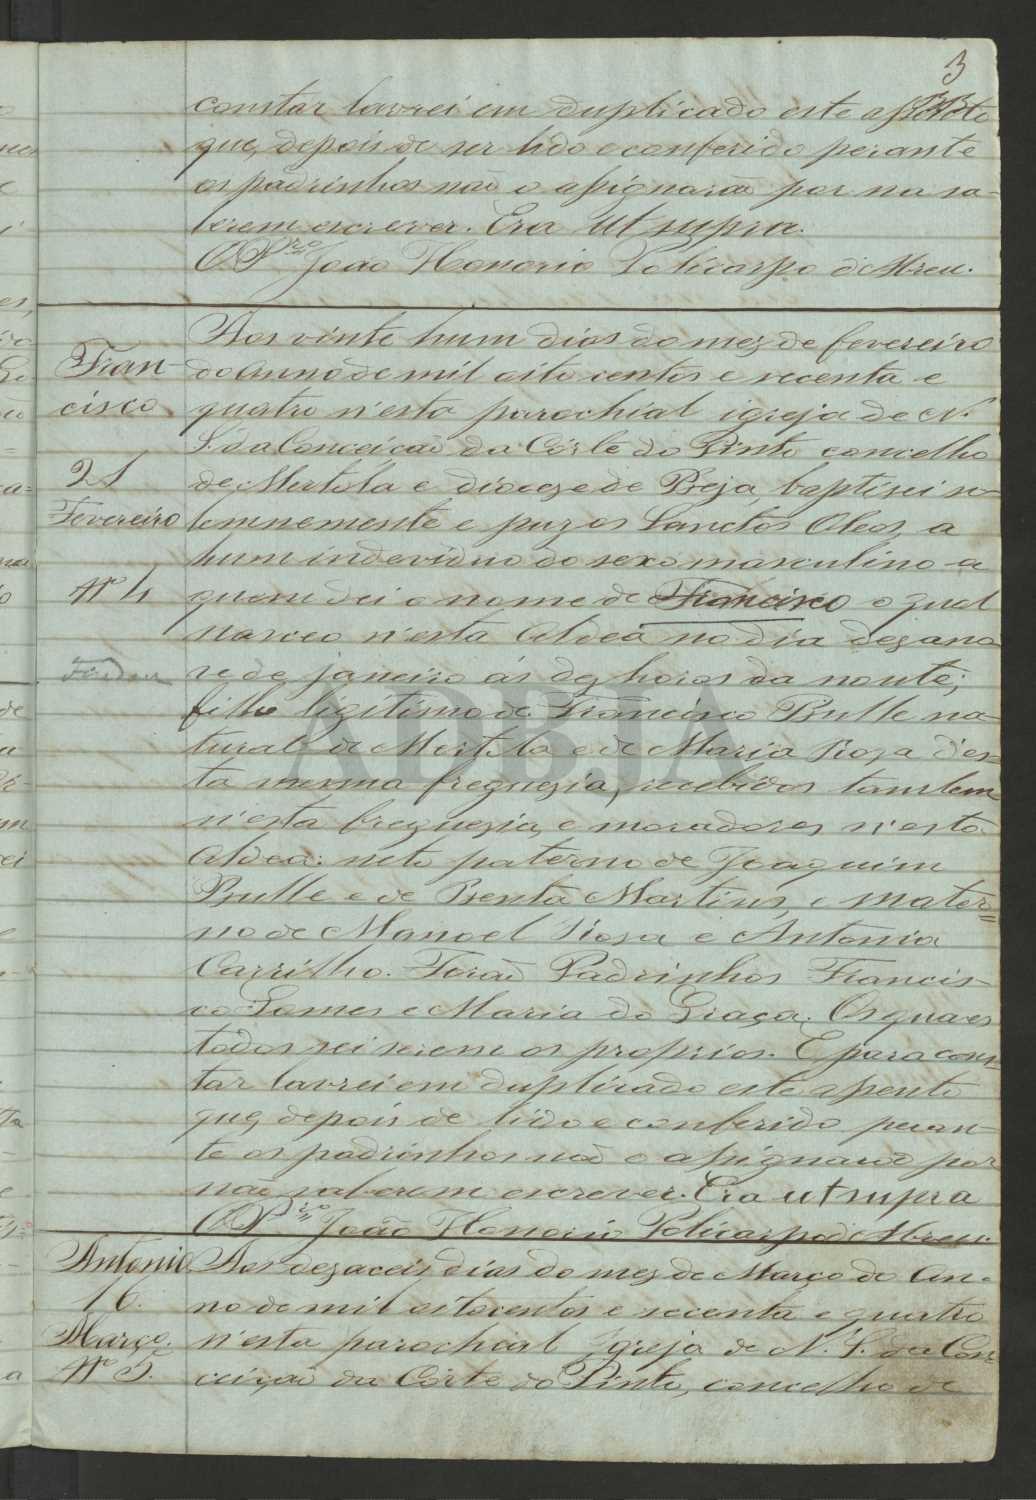 3
constar lavrei em duplicado este assento
que, depois de ser lido e conferido perante
os padrinhos não o assignarão por na sa-
berem escrever. Era ut supra.
O P.ro João Honorio Policarpo d'Abreu.
Fran-
cisco
21
Fevereiro
Nº 4
Aos vinte hum dias do mez de fevereiro
do anno de mil oito centos e secenta e
quatro n'esta parochial igreja de N.
S. da Conceição da Côrte do Pinto concelho
de Mertola e dioceze de Beja, baptisei so-
lemnemente e puz os Sanctos Oleos, a
hum indeviduo do sexo masculino a
quem dei o nome de Francisco o qual
nasceo n'esta Aldea no dia dezano
ve de janeiro ás dez horas da noute;
filho ligitimo de Francisco Bulle na-
tural de Mertola e de Maria Rosa d'es-
ta mesma freguezia, recebidos tambem
n'esta freguezia, e moradores n'esta
Aldea: neto paterno de Joaquim
Bulle e de Benta Martins, e mater=
no de Manoel Rosa e Antonia
Carrilho. Forão Padrinhos Francis-
co Gomes e Maria da Graça. Os quaes
todos sei serem os proprios. E para cons-
tar lavrei em duplicado este assento
que, depois de lido e conferido peran-
te os padrinhos não o assignarão por
não saberem escrever. Era ut supra
O P.ro João Honorio Policarpo d'Abreu.
Antonio
16.
Março.
Nº 5.
Aos dezaceis dias do mez de Março do An-
no de mil oitocentos e secenta e quatro
n'esta parochial Igreja de N. S. da Con
ceição da Côrte do Pinto, concelho de
ADBJA